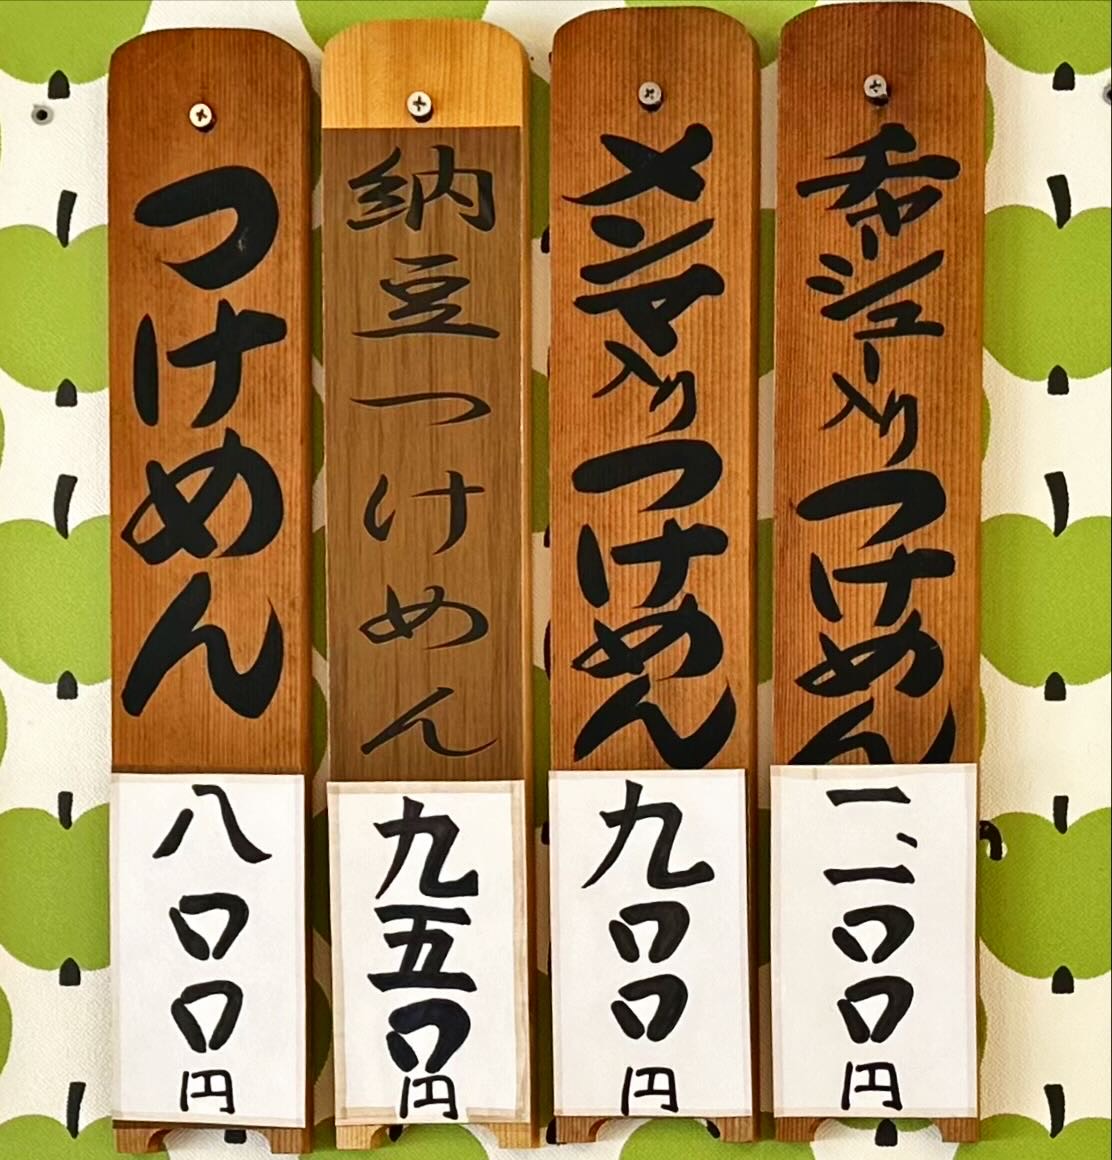 チャーシュー入りつけめん
一、一〇〇円
メンマ入りつけめん
九〇〇円
納豆つけめん
九五〇円
つけめん
八〇〇円